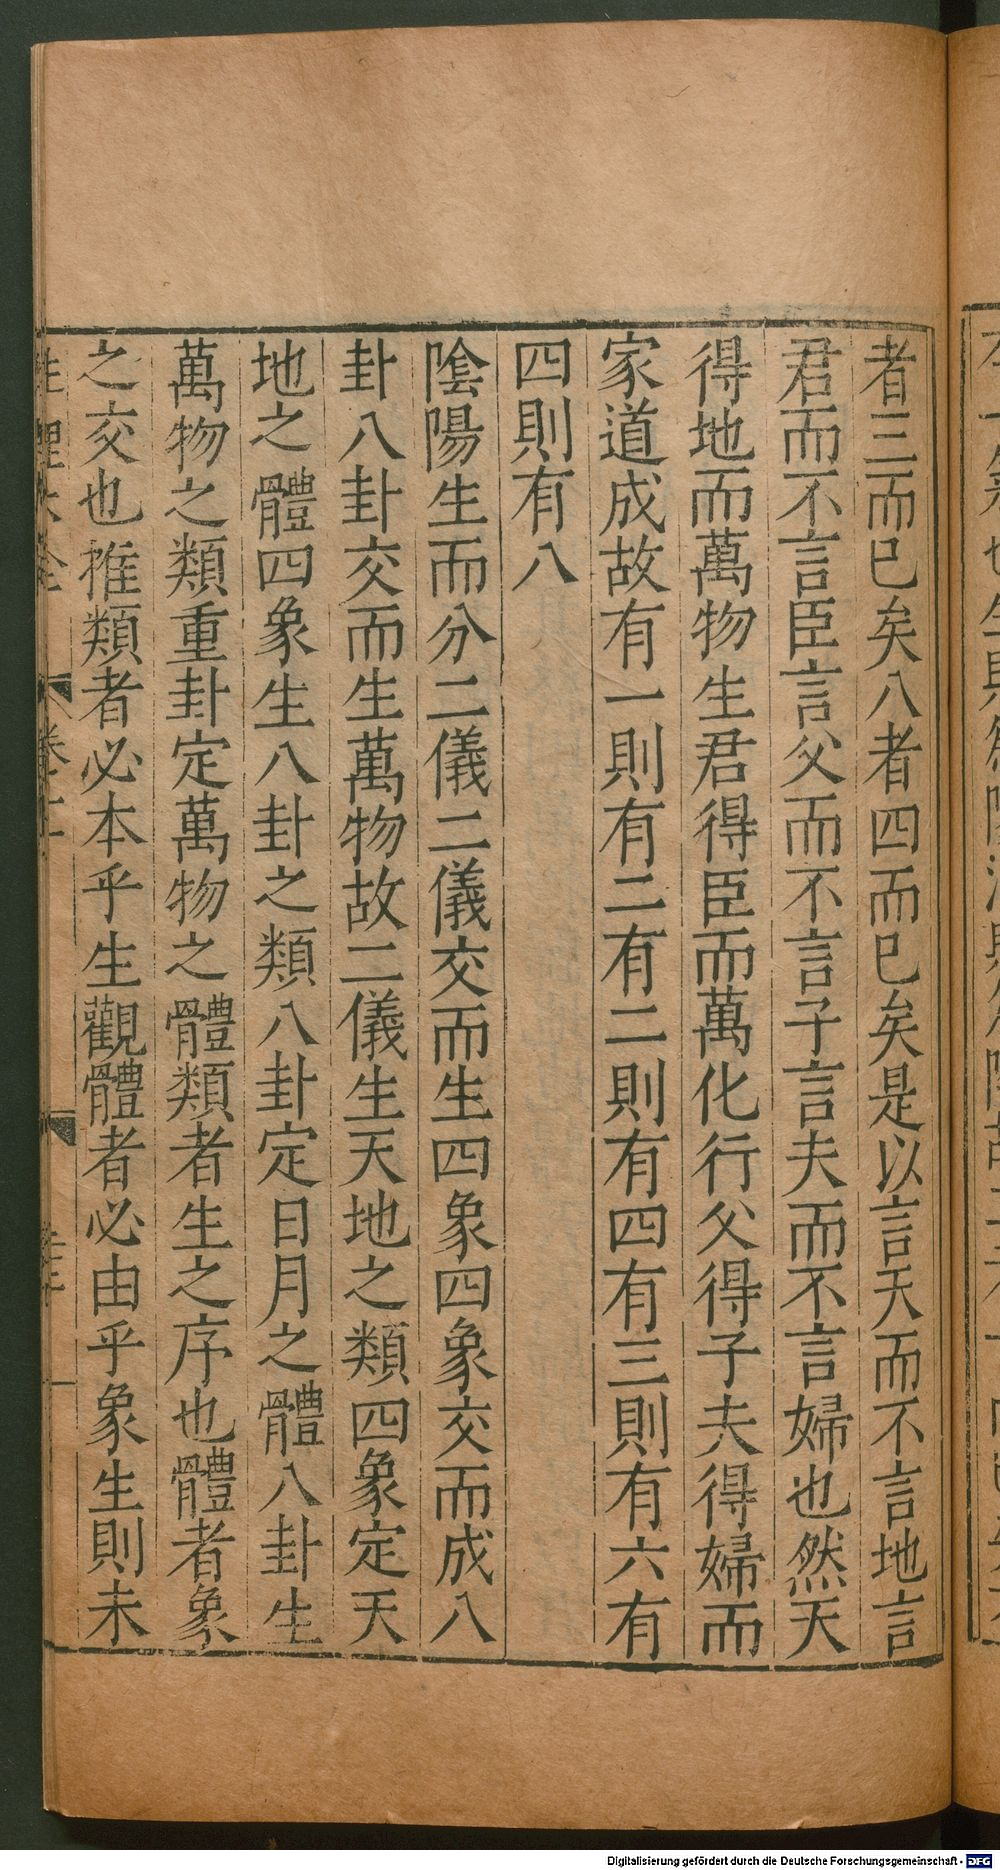 者三而已矣八者四而已矣是以言天而不言地言
君而不言臣言父而不言子言夫而不言婦也然天
得地而萬物生君得臣而萬化行父得子夫得婦而
家道成故有一則有二有二則有四有三則有六有
四則有八
陰陽生而分二儀二儀交而生四象四象交而成八
卦八卦交而生萬物故二儀生天地之類四象定天
地之體四象生八卦之類八卦定日月之體八卦生
萬物之類重卦定萬物之體類者生之序也體者象
之交也推類者必本乎生觀體者必由乎象生則未
Digitalisierung gefördert durch die Deutsche Forschungsgemeinschaft - DFG